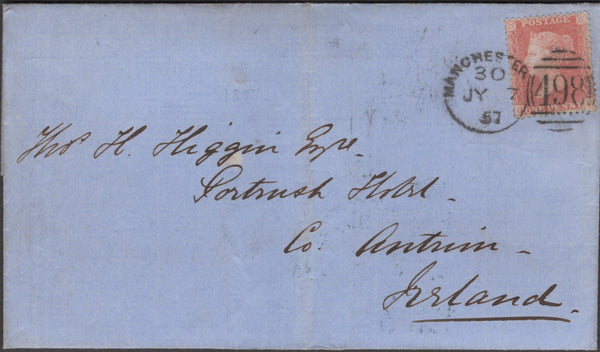 POSTAGE
MANCHESTER
30
JY 7
57
498
Thos H. Higgin Esqre
Portrush Hotel.
Co. Antrim
Ireland.